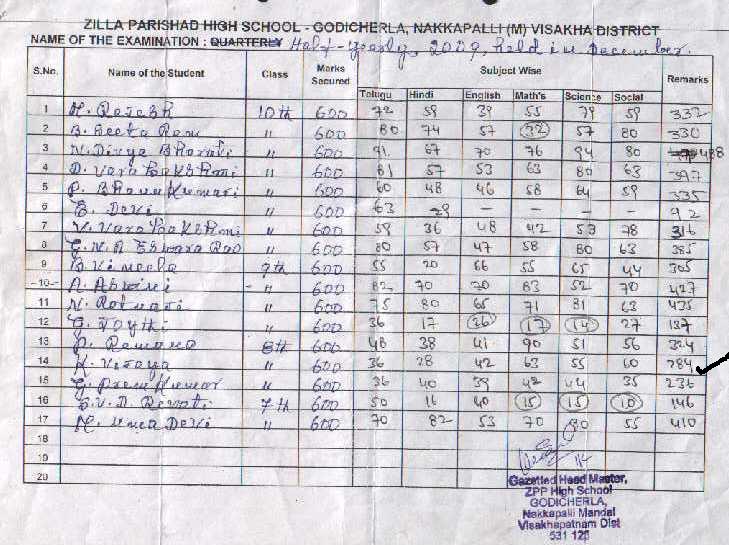 ZILLA PARISHAD HIGH SCHOOL - GODICHERLA, NAKKAPALLI (M) VISAKHA DISTRICT
NAME OF THE EXAMINATION : QUARTERLY Half-yearly, 2009, held in December.
S.No. Name of the Student Class Marks Secured Subject Wise Remarks
Telugu Hindi English Math's Science Social
1 10th 600 72 59 39 55 79 59 332
2 B. Geeta Rani " 600 80 74 57 32 57 80 330
3 N. Divya Bharati " 600 91 67 70 76 94 80 488
4 D. Vara Lakshmi " 600 81 57 53 63 80 63 397
5 P. Bhanu Kumari " 600 60 48 46 58 64 59 335
6 Devi " 600 63 29 - - - - 92
7 V. Vara Lakshmi " 600 59 36 48 42 53 78 316
8 Eswara Rao " 600 80 57 47 58 80 63 385
9 9th 600 55 20 66 55 65 44 305
10 A. " 600 82 70 70 83 52 70 427
11 " 600 75 80 65 71 81 63 435
12 " 600 36 17 26 17 14 27 137
13 Ramana 8th 600 48 38 41 90 51 56 324
14 K. Vijaya " 600 36 28 42 63 55 60 284
15 Prem Kumar " 600 36 40 39 42 44 35 236
16 Revati 7th 600 50 16 40 15 15 10 146
17 Uma Devi " 600 70 82 53 70 80 55 410
18
19
20
Gazetted Head Master,
ZPP High School
GODICHERLA,
Nakkapalli Mandal
Visakhapatnam Dist
531 126